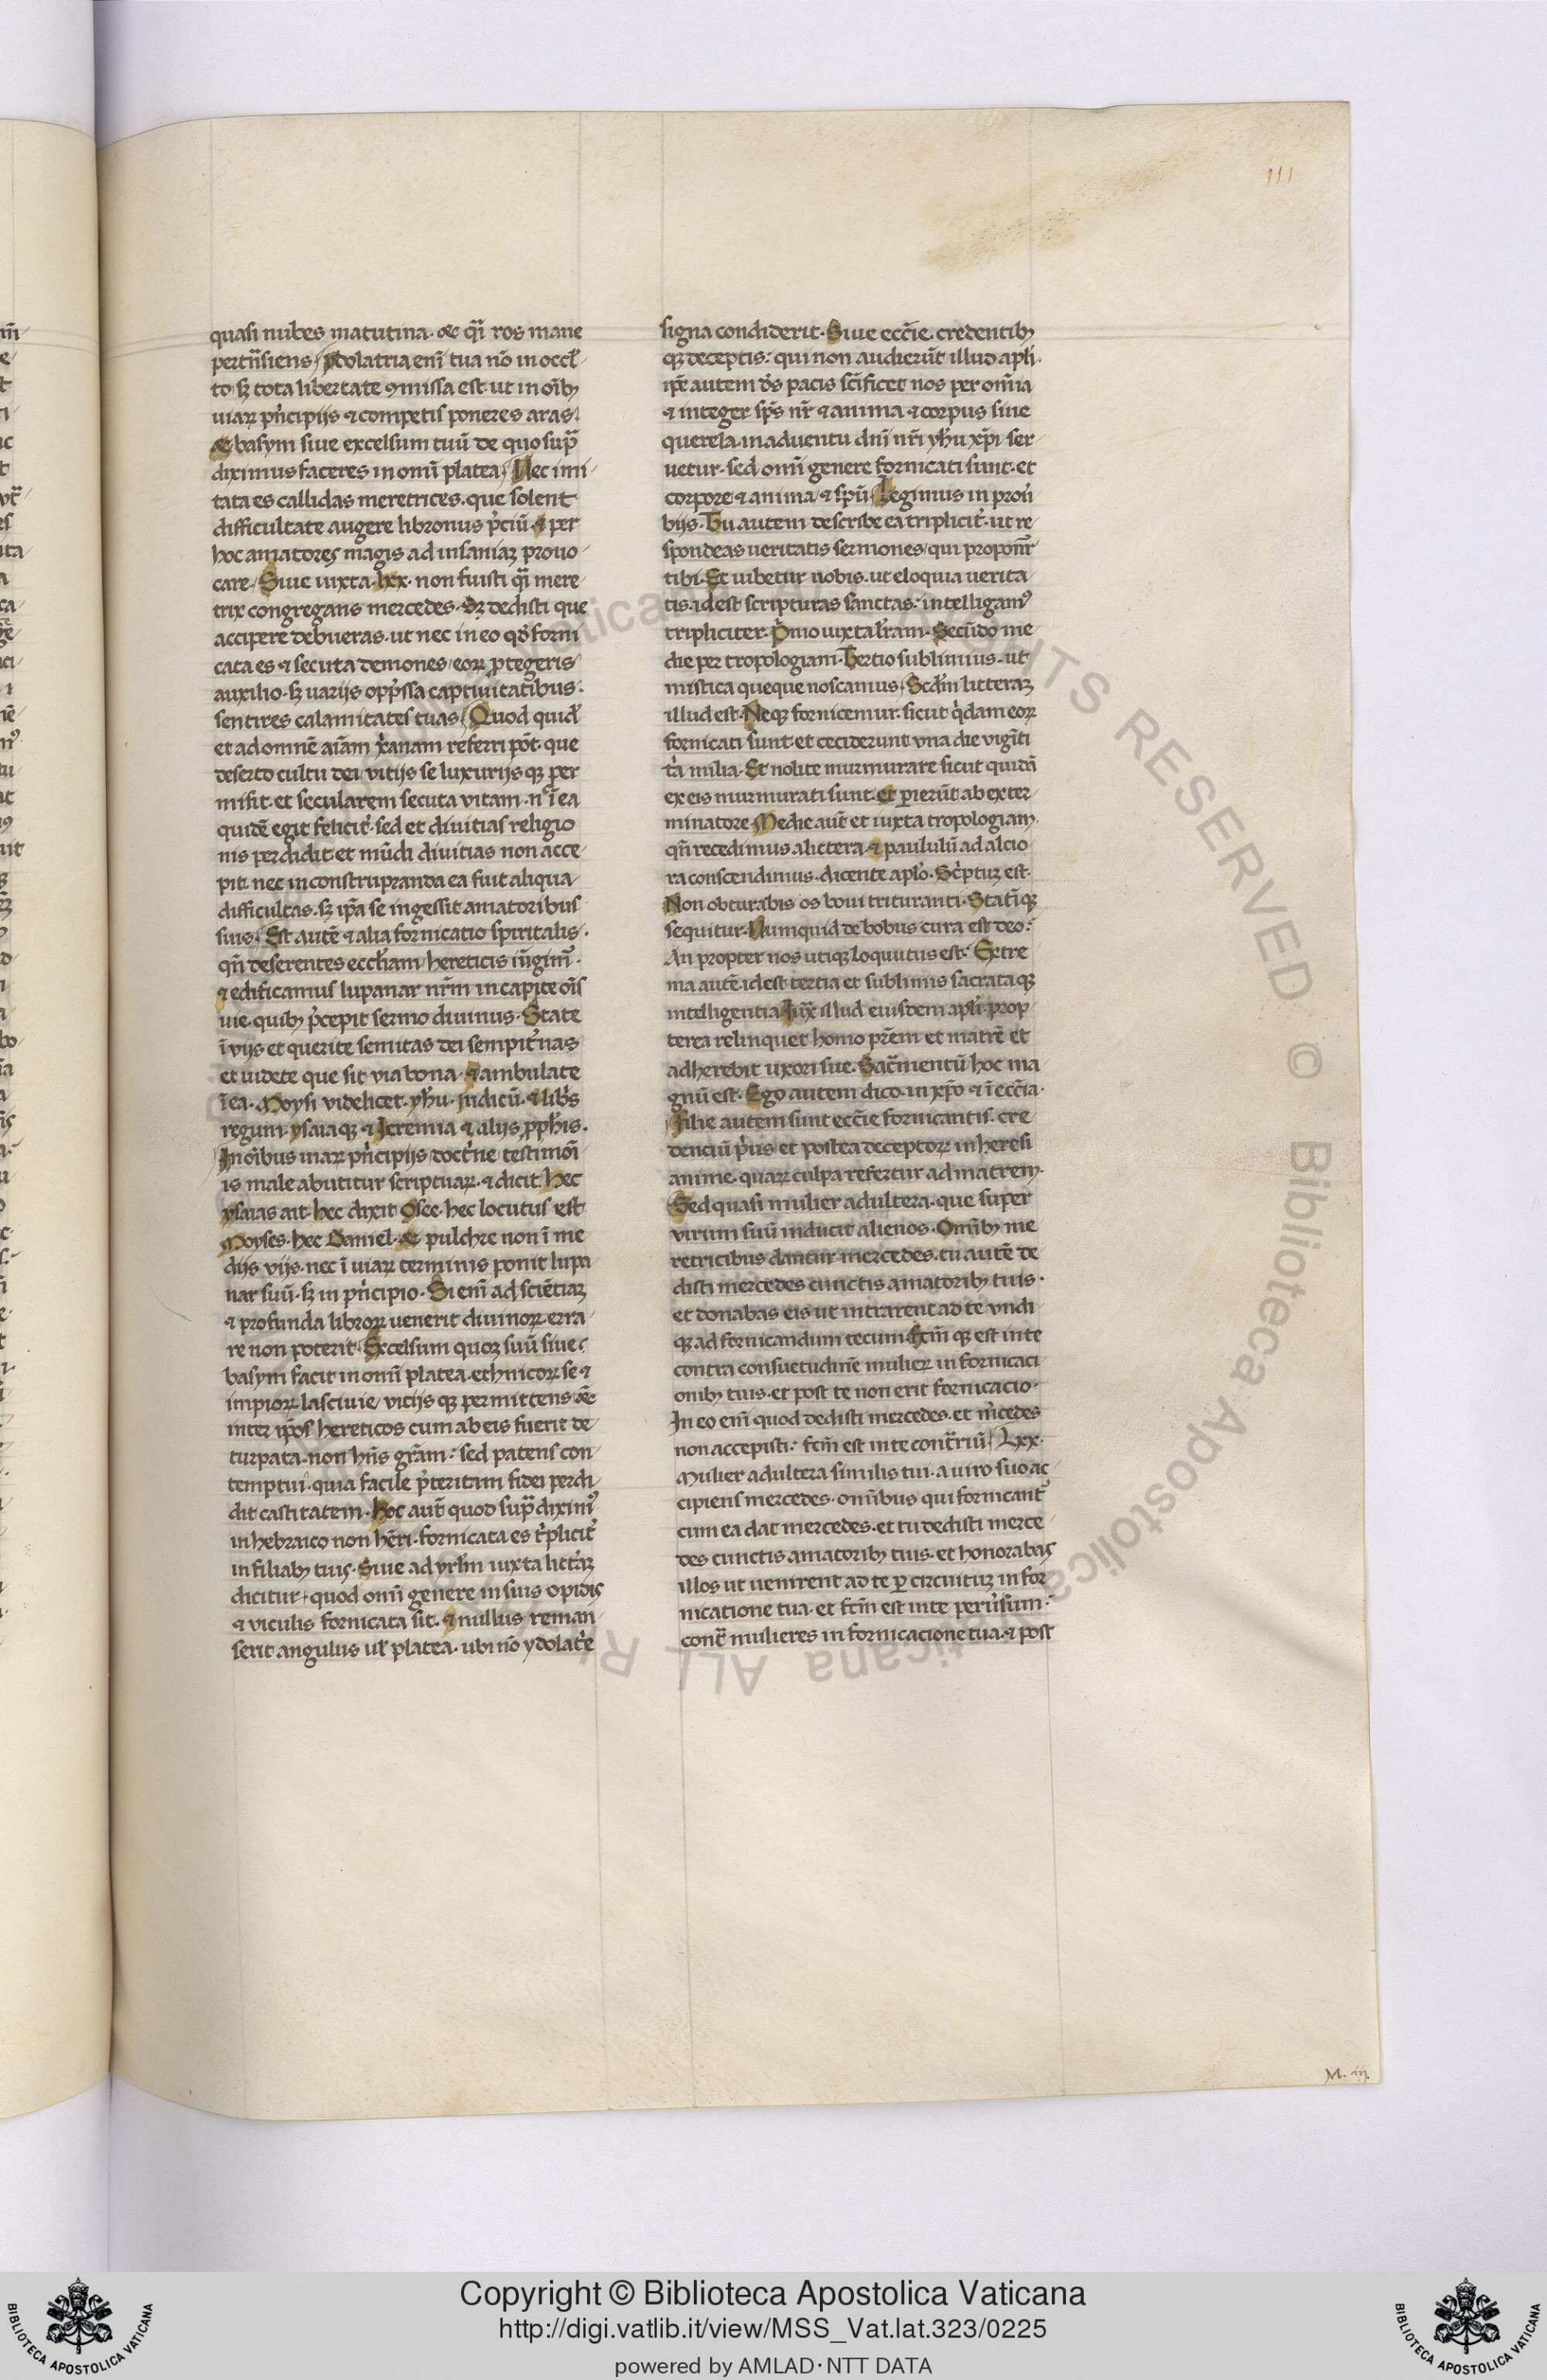 111
quasi nubes matutina. et qͣi ros mane
pertn̄siens / ydolatria eni᷒ tua nō in occl̓
to sꝫ tota libertate ꝯmissa est. ut in oīb᷒
uiaꝝ pͥncipijs et competis poneres aras.
et basym siue excelsum tuū de quo supͣ
diximus faceres in omi᷒ platea / Nec imi
tata es callidas meretrices. que solent
difficultate augere libronus p̓ciū. et per
hoc amatores magis ad insaniaꝫ prouo
care. Siue iuxta. lxx. non fuisti qͣi mere
trix congregans mercedes. sꝫ dedisti que
accipere debueras. ut nec in eo qd̓ forni
cata es et secuta demones / eoꝝ ꝓtegeris
auxilio. sꝫ uarijs opp̓ssa captiuitatībus.
sentires calamitates tuas / Quod quid̓
et ad omnē aīam xp̄anam referri pōt. que
deserto cultu dei / vitijs se luxurijs qꝫ per
misit. et secularem secuta vitam. nͨ ī ea
quidē egit felicit᷑. sed et diuitias religio
nis perdidit. et mūdi diuitias non acce
pit. nec in construpranda ea fuit aliqua
difficultas. sꝫ ip̄a se ingessit amatoribus
suis. Est autē et alia fornicatio spiritalis.
qn̄ deserentes eccl̓iam / hereticis iūgim᷒.
et edificamus lupanar nr̄m in capite oīs
uie. quib᷒ p̓cepit sermo diuinus. State
ī vijs et querite semitas dei sempit᷑nas
et uidete que sit via bona. et ambulate
ī ea. Moysi videlicet. yh̓u. iudicū. et lib̓s
regum. ysaia qꝫ et Jeremia et alijs ꝓph̓is.
In oībus uiaꝝ pͥncipijs / doct͛ne testimōi
is male abutitur scriptuaꝝ. et dicit. hec
ysaias ait. hec dixit Osee. hec locutus est
Moyses. hec Daniel. et pulchre non ī me
dijs vijs. nec ī uiaꝝ terminis ponit lupa
nar suū. sꝫ in pͥncipio. Si eni᷒ ad sciētiaꝫ
et profunda libroꝝ uenerit diuinoꝝ. erra
re non poterit. Excelsum quoqꝫ suū siue
basym facit in omi᷒ platea. ethnicoꝝ se et
impioꝝ lasciuie / vicijs qꝫ permittens. et
inter ip̄os hereticos cum ab eis fuerit de
turpata. non hn̄s grām. sed patens con
temptui. quia facile p̓teritam fidei perdi
dit castitatem. Hoc aut̄ quod supͣ dixim᷒
in hebraico non hēri. fornicata es t͛plicit᷑
in filiab᷒ tuis. Siue ad yrl̓m iuxta litt᷑aꝫ
dicitur. quod omi᷒ genere in suis opidis
et viculis fornicata sit. et nullus reman
serit angulus ul̓ platea. ubi nō ydolat͛e
signa condiderit. Siue eccl̄ie. credentib᷒
qꝫ deceptis. qui non audierūt illud apl̓i.
ip̄e autem d̓s pacis sc̄ificet nos per omīa
et integer sp̄s nr̄ et anima et corpus sine
querela. in aduentu dn̄i nr̄i yh̓u xp̄i ser
uetur. sed omi᷒ genere fornicati sunt. et
corpore et anima et spū. Legimus in prou᷑
bijs. Tu autem describe ea triplicit᷑. ut re
spondeas ueritatis sermones / qui proponn̄t᷑
tibi. Et iubetur nobis. ut eloquia uerita
tis. id est scripturas sanctas. intelligam᷒
tripliciter. P͛mo iuxta lr̄am. Secūdo me
die per tropologiam. Tertio sublimius. ut
mistica queque noscamus / Scd̓m litteraꝫ
illud est. Neqꝫ fornicemur. sicut qͥdam eoꝝ
fornicati sunt. et ceciderunt vna die vigīti
t͛a milia. Et nolite murmurare sicut quidā
ex eis murmurati sunt. et ꝑierūt ab exter
minatore. Medie aut̄ et iuxta tropologiam.
qn̄ recedimus a littera. et paululū ad alcio
ra conscendimus. dicente apl̓o. Sc͛ptuꝫ est.
Non obturabis os boui trituranti. Statīqꝫ
sequitur. Numquid de bobus cura est deo.
An propter nos utiqꝫ loquutus est. Extre
ma autē. id est tertia et sublimis sacrata qꝫ
intelligentia. Juxͭ illud eiusdem apl̓i. prop
terea relinquet homo pr̄em et matrē et
adherebit uxori sue. Sac̓mentū hoc ma
gnū est. Ego autem dico. in xp̄o et ī eccīa.
Filie autem sunt eccīe fornicantis. cre
denciū p͛us et postea deceptoꝝ in heresi
anime. quaꝝ culpa refertur ad matrem.
Sed quasi mulier adultera. que super
virum suū inducit alienos. Omībꝫ me
retricibus dantur mercedes. tu autē de
disti mercedes cunctis amatorib᷒ tuis.
et donabas eis ut intrarent ad te vndi
qꝫ ad fornicandum tecum. fc̄m qꝫ est in te
contra consuetudinē mulieꝝ in fornicaci
onib᷒ tuis. et post te non erit fornicacio.
In eo eni᷒ quod dedisti mercedes. et m᷑cedes
non accepisti. fc̄m est in te cont͛riū / Lxx.
Mulier adultera similis tui. a uiro suo ac
cipiens mercedes. omībus qui fornicant᷑
cum ea dat mercedes. et tu dedisti merce
des cunctis amatorib᷒ tuis. et honorabas
illos ut uenirent ad te ꝑ circuituꝫ in for
nicatione tua. et fc̄m est in te peru᷑sum.
contͣ mulieres in fornicacione tua. et post
M. iij.
Copyright © Biblioteca Apostolica Vaticana
http://digi.vatlib.it/view/MSS_Vat.lat.323/0225
powered by AMLAD·NTT DATA
BIBLIOTECA APOSTOLICA VATICANA
BIBLIOTECA APOSTOLICA VATICANA